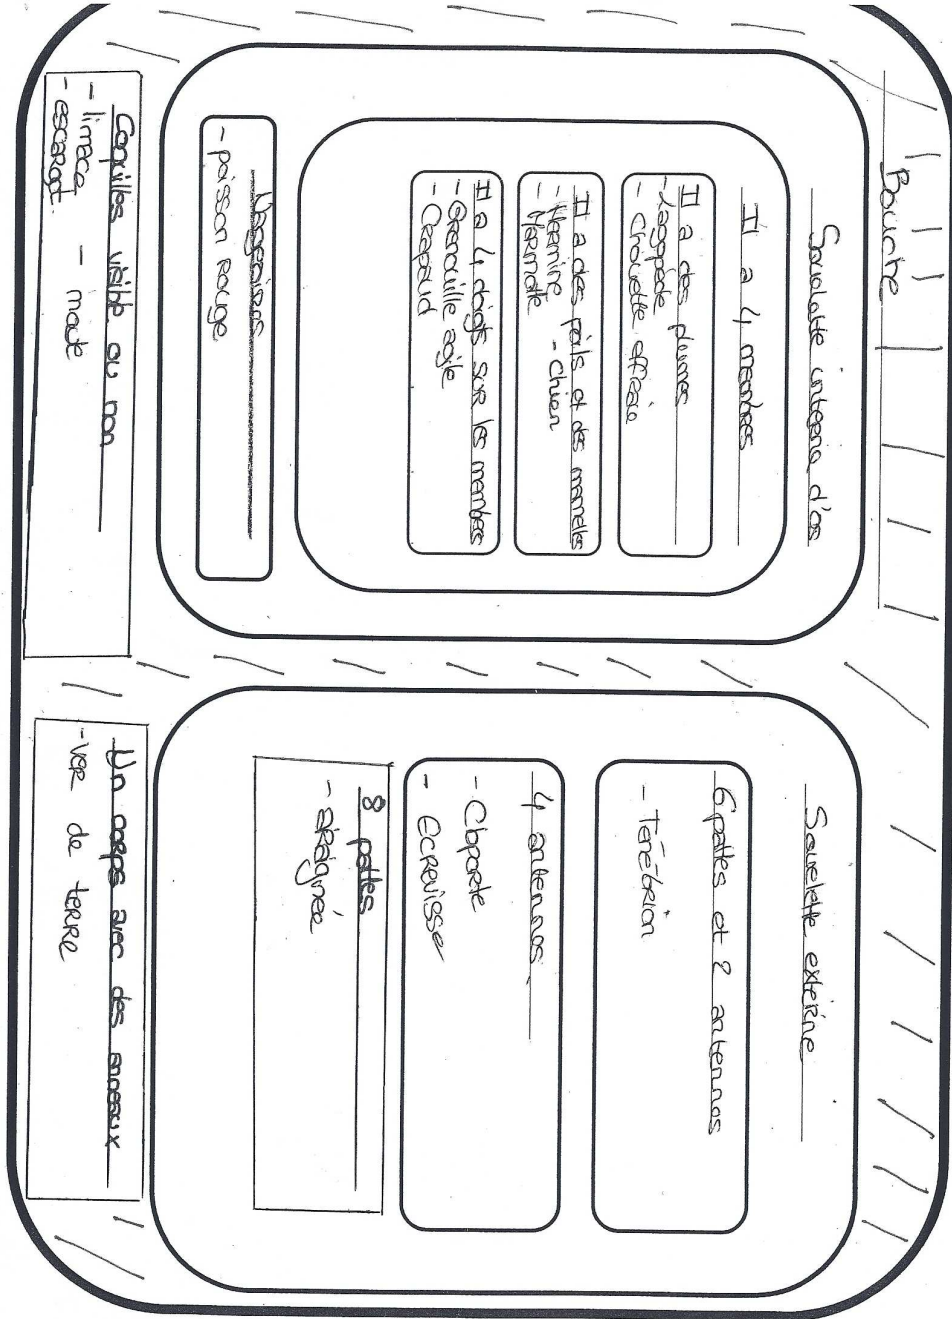 Bouche
Squelette interne d'os
Il a 4 membres
Il a des plumes
- Lagopède
- Chouette effraie
Il a des poils et des mamelles
- Hermine - Chien
- Marmotte
Il a 4 doigts sur les membres
- Grenouille agile
- Crapaud
Nageoires
- poisson rouge
Coquilles visible ou non
- limace - moule
- escargot
Squelette externe
6 pattes et 2 antennes
- Ténébrion
4 antennes
- Cloporte
- Ecrevisse
8 pattes
- araignée
Un corps avec des anneaux
- ver de terre